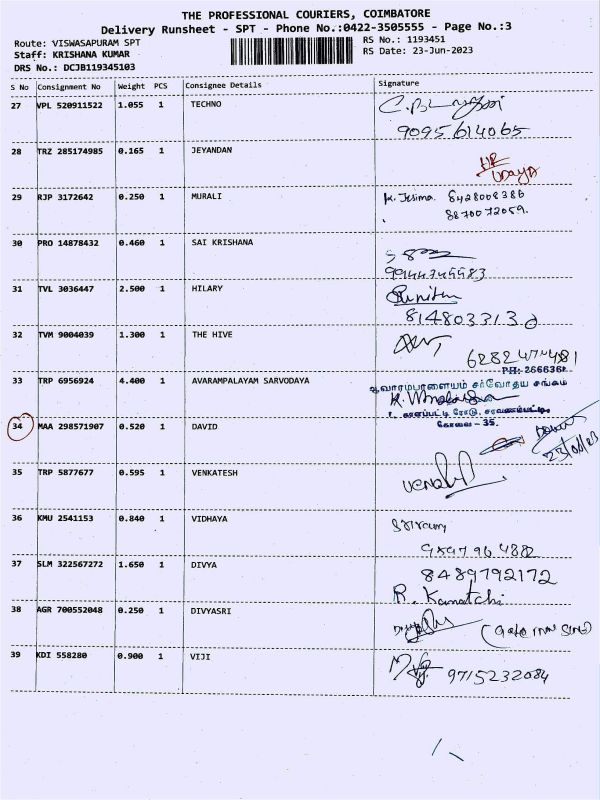 THE PROFESSIONAL COURIERS, COIMBATORE
Delivery Runsheet - SPT - Phone No.:0422-3505555 - Page No.:3
Route: VISWASAPURAM SPT
RS No.: 1193451
Staff: KRISHANA KUMAR
RS Date: 23-Jun-2023
DRS No.: DCJB119345103
S No Consignment No Weight PCS Consignee Details Signature
27 VPL 520911522 1.055 1 TECHNO
9095614065
28 TRZ 285174985 0.165 1 JEYANDAN
Udaya
29 RJP 3172642 0.250 1 MURALI
K. Jesima 8428008386
8870072059.
30 PRO 14878432 0.460 1 SAI KRISHANA
31 TVL 3036447 2.500 1 HILARY
8148033130
32 TVM 9004039 1.300 1 THE HIVE
6282474481
PH: 266636
33 TRP 6956924 4.400 1 AVARAMPALAYAM SARVODAYA
ஆவாரம்பாளையம் சர்வோதய சங்கம்
காளப்பட்டி ரோடு, சரவணம்பட்டி
கோவை - 35.
34 MAA 298571907 0.520 1 DAVID
23/06/23
35 TRP 5877677 0.595 1 VENKATESH
36 KMU 2541153 0.840 1 VIDHAYA
9597964882
37 SLM 322567272 1.650 1 DIVYA
8489792172
R. Kamatchi
38 AGR 700552048 0.250 1 DIVYASRI
39 KDI 558280 0.900 1 VIJI
9715232084